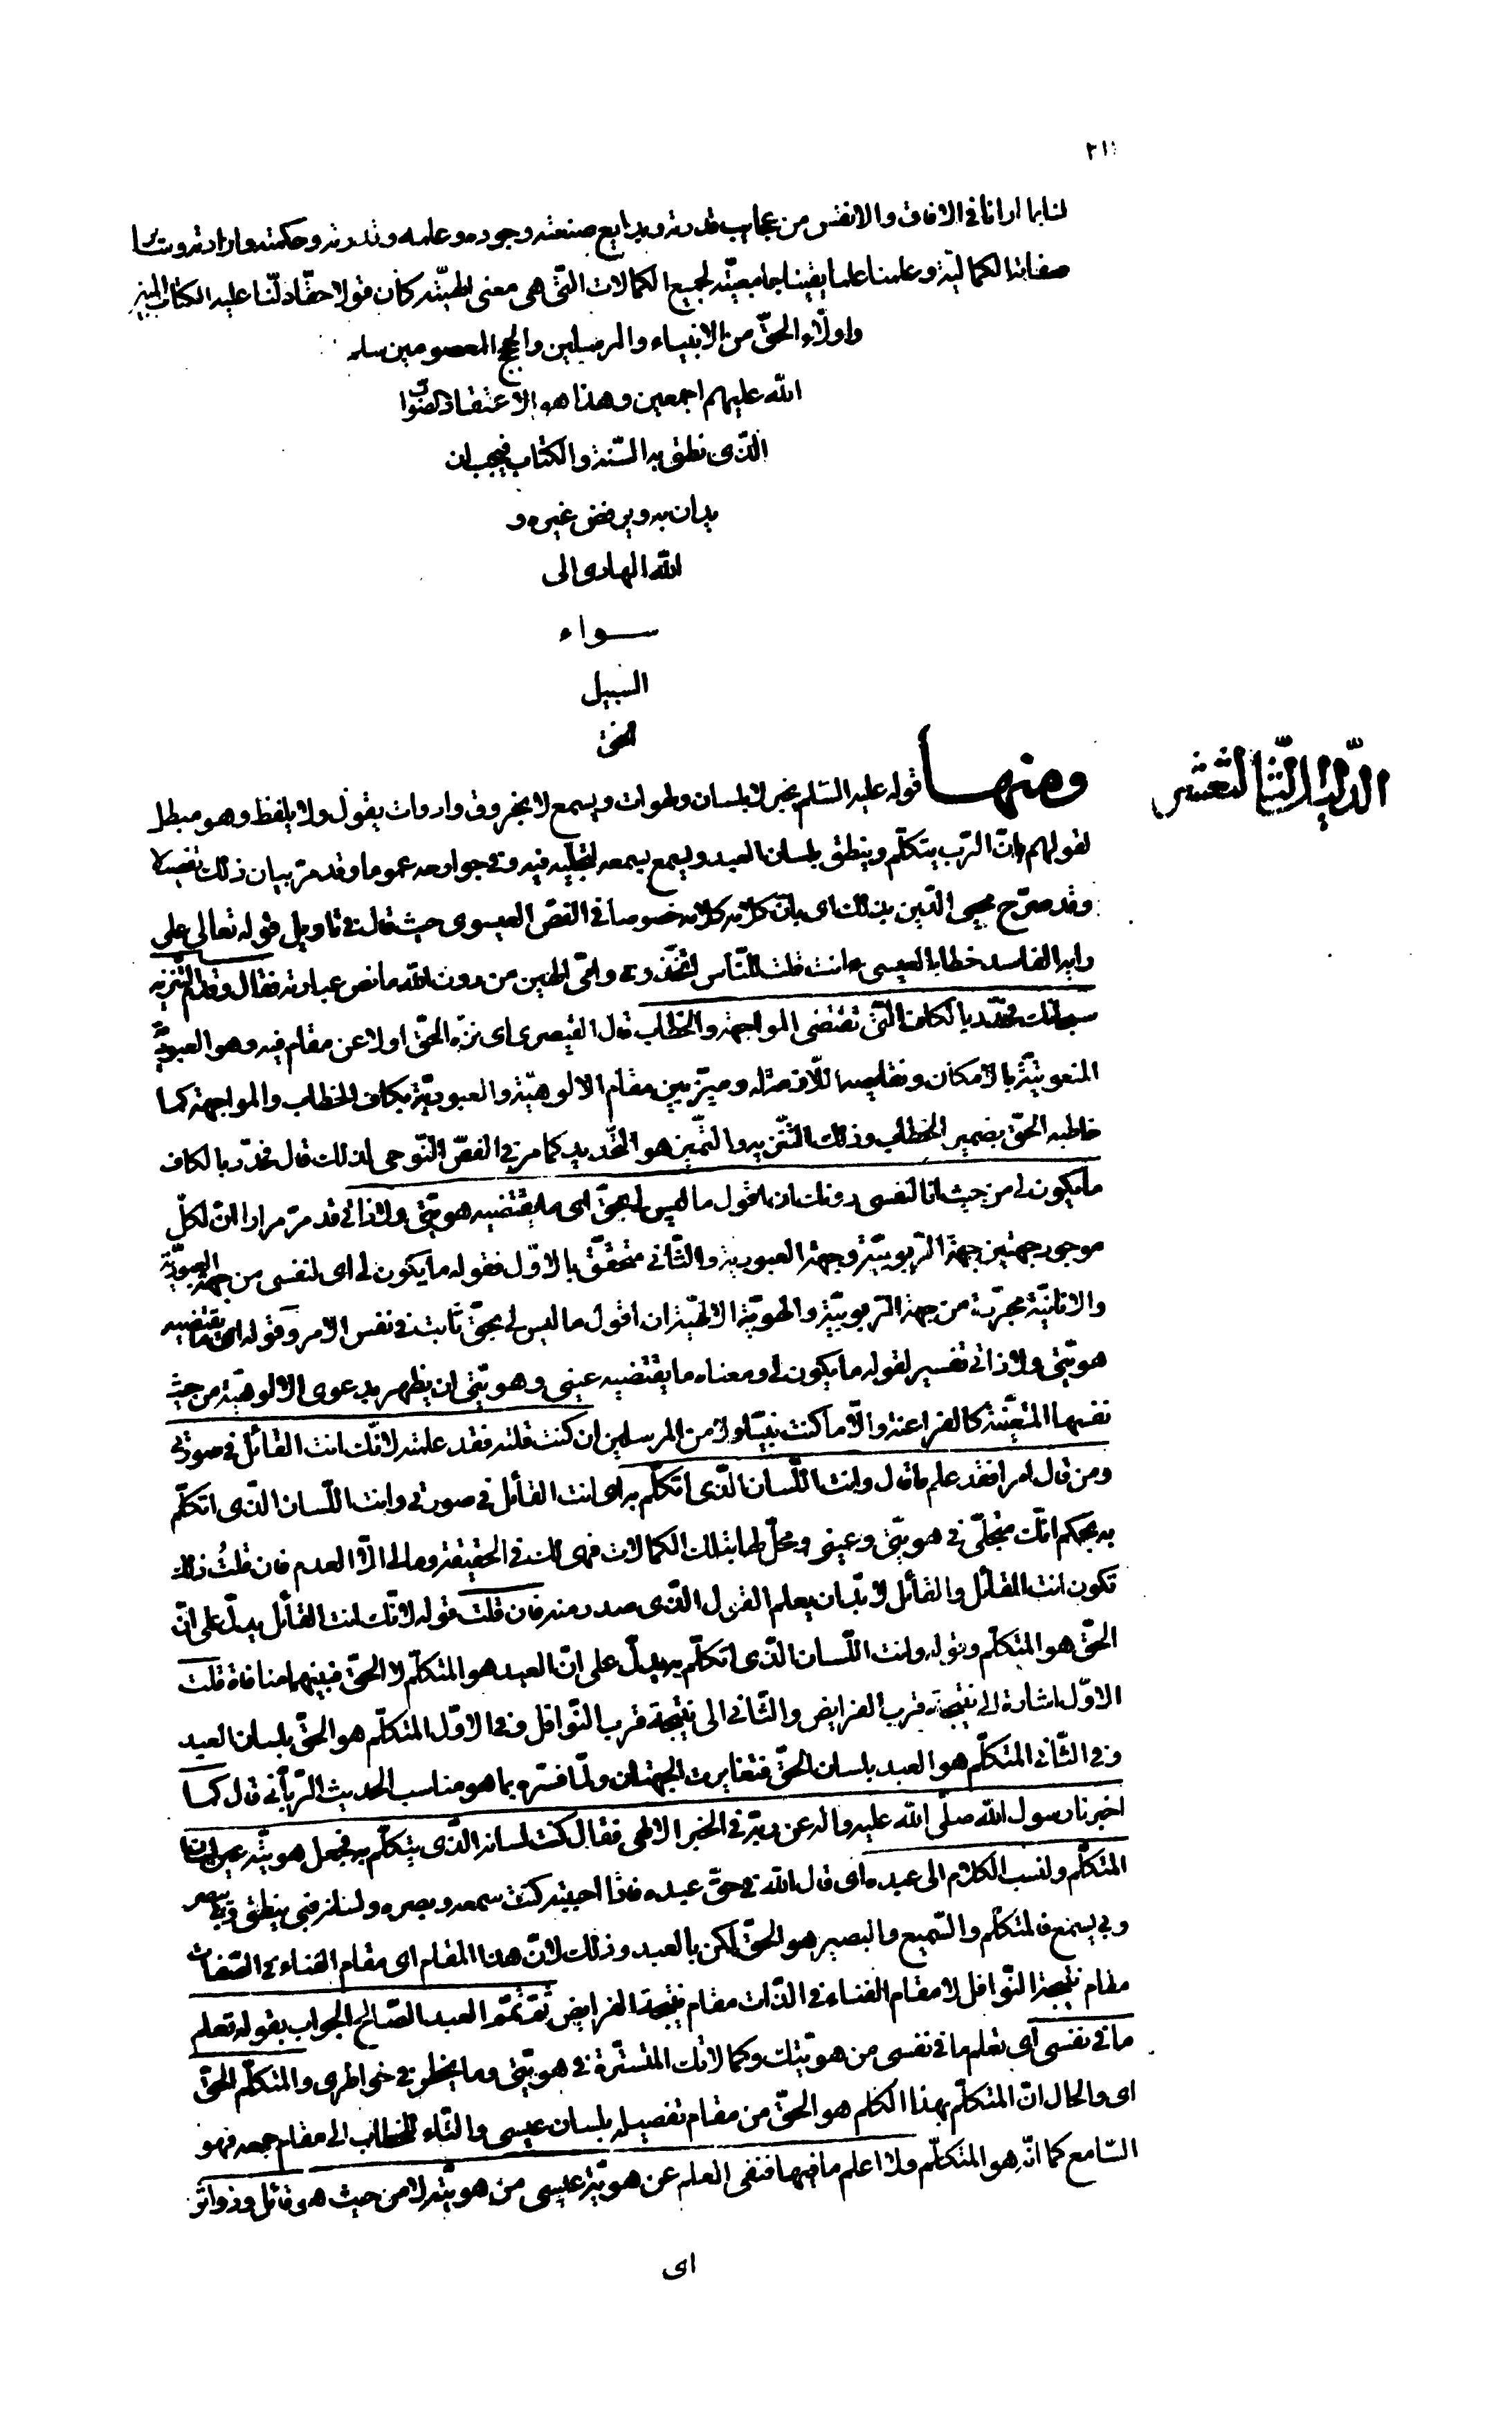 ٢١١
لنا بما ارانا فى الافاق والانفس من عجايب قدرته وبدايع صنعته وجوده وعلمه وقدرته وحكمته وارادته وساير
صفاته الكمالية وعلمنا علما يقينا جامعيته لجميع الكمالات التى هى معنى الهيته كان قولا حقا دلنا عليه الكتاب المبين
واولاء الحق من الانبياء والمرسلين والحجج المعصومين سلم
الله عليهم اجمعين وهذا هو الاعتقاد الصواب
الذى نطق به السنة والكتاب فيجب ان
يدان به ويرفض غيره و
الله الهادى الى
سواء
السبيل
الدليل الثالث عشر
ومنها قوله عليه السلم يخبر لا بلسان ولهوات ويسمع لا بخروق وادوات يقول ولا يلفظ وهو مبطل
لقولهم بان الرب يتكلم وينطق بلسان العبد ويسمع بسمعه لتجليه فيه وفى جوارحه عموما وقد مر بيان ذلك تفصيلا
وقد صرح محيى الدين بذلك اى بان كلامه كلامه خصوصا فى الفص العيسوى حيث قال فى تاويل قوله تعالى على
رايه الفاسد خطابا لعيسى ءانت قلت للناس اتخذونى وامى الهين من دون الله ما نص عبارته فقال وقدم التنزيه
سبحانك فحدد بالكاف التى تقتضى المواجهة والخطاب قال القيصرى اى نزه الحق اولا عن مقام فيه وهو العبودية
المنعوتية بالامكان ونقايصه اللازمة له وميز بين مقام الالوهية والعبودية بكاف الخطاب والمواجهة كما
خاطبه الحق بضمير الخطاب وذلك التنزيه والتميز هو التحديد كما مر فى الفص النوحى لذلك قال فحدد بالكاف
ما يكون لى من حيث انا لنفسى دونك ان اقول ما ليس لى بحق اى ما يقتضيه هويتى ولا ذاتى قد مر مرارا ان لكل
موجود جهتين جهة الربوبية وجهة العبودية والثانى متحقق بالاول فقوله ما يكون لى اى لنفسى من جهة العبودية
والانانية مجردة من جهة الربوبية والهوية الالهية ان اقول ما ليس لى بحق ثابت فى نفس الامر وقوله اى ما يقتضيه
هويتى ولا ذاتى تفسير لقوله ما يكون لى ومعناه ما يقتضيه عينى وهويتى ان يظهر بدعوى الالوهية من حيث
نفسها المتعينة كالفراعنة والا ما كنت نبيا ولا من المرسلين ان كنت قلته فقد علمته لانك انت القائل فى صورتى
ومن قال امرا فقد علم ما قال وانت اللسان الذى اتكلم به اى انت القائل فى صورتى وانت اللسان الذى اتكلم
به بحكم انك متجلى فى هويتى وعينى ومحل لها بتلك الكمالات فهى لك فى الحقيقة وما لى الا العدم فان قلت ذلك
تكون انت القائل والقائل لا بد ان يعلم القول الذى صدر منه فان قلت قوله لانك انت القائل يدل على ان
الحق هو المتكلم وقوله وانت اللسان الذى اتكلم به يدل على ان العبد هو المتكلم لا الحق فبينهما منافاة قلت
الاول اشارة الى نتيجة قرب الفرايض والثانى الى نتيجة قرب النوافل وفى الاول المتكلم هو الحق بلسان العبد
وفى الثانى المتكلم هو العبد بلسان الحق فتغايرت الجهتان ولما فسره بما هو مناسب الحديث الربانى قال كما
اخبرنا رسول الله صلى الله عليه واله عن ربه فى الخبر الالهى فقال كنت لسانه الذى يتكلم به فجعل هويته عين لسان
المتكلم ونسب الكلام الى عبده اى قال الله فى حق عبده فاذا احببته كنت سمعه وبصره ولسانه فبى ينطق وبى يبصر
وبى يسمع فالمتكلم والسميع والبصير هو الحق لكن بالعبد وذلك لان هذا المقام اى مقام الفناء فى الصفات
مقام نتيجة النوافل لا مقام الفناء فى الذات مقام نتيجة الفرايض ثم تمم العبد الصالح الجواب بقوله تعلم
ما فى نفسى اى تعلم ما فى نفسى من هويتك وكمالاتك المتسترة فى هويتى وما يخطر فى خواطرى والمتكلم الحق
اى والحال ان المتكلم بهذا الكلام هو الحق من مقام تفصيله بلسان عيسى والتاء للخطاب الى مقام جمعه فهو
السامع كما انه هو المتكلم ولا اعلم ما فيها فنفى العلم عن هوية عيسى من هويته لا من حيث هو قائل وذو اثر
اى